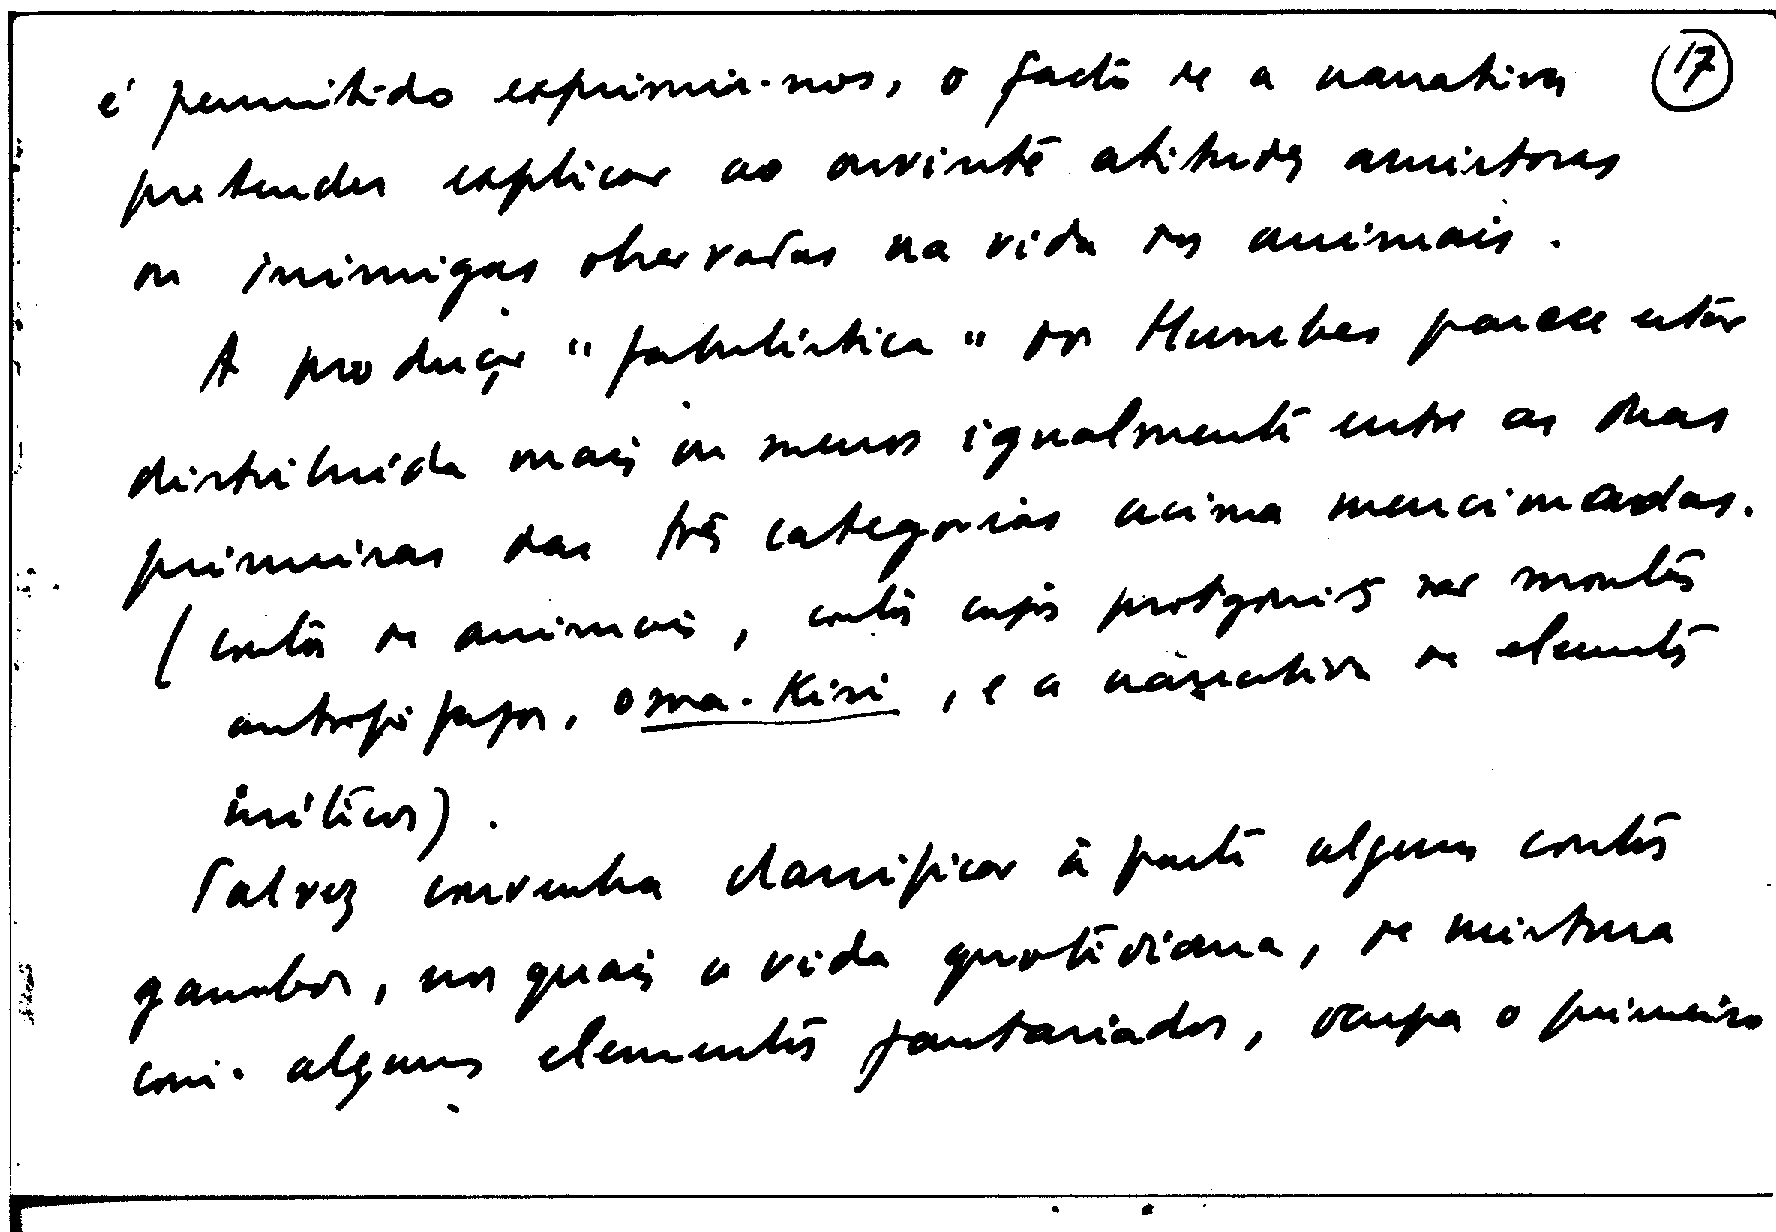 17
é permitido exprimir-nos, o facto de a narrativa
pretender explicar ao ouvinte atitudes amistosas
ou inimigas observadas na vida dos animais.
A produção "fabulística" dos Humbes parece estar
distribuída mais ou menos igualmente entre as duas
primeiras das três categorias acima mencionadas.
(contos de animais, contos cujos protagonistas são monstros
antropófagos, oma-Kisi, e a narrativa de elementos
míticos).
Talvez convenha classificar à parte alguns contos
gambos, nos quais a vida quotidiana, de mistura
com alguns elementos fantasiados, ocupa o primeiro